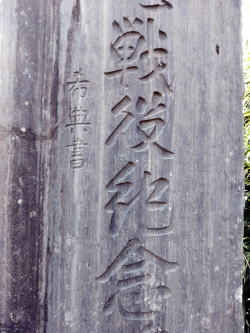 戦役紀念
希典書